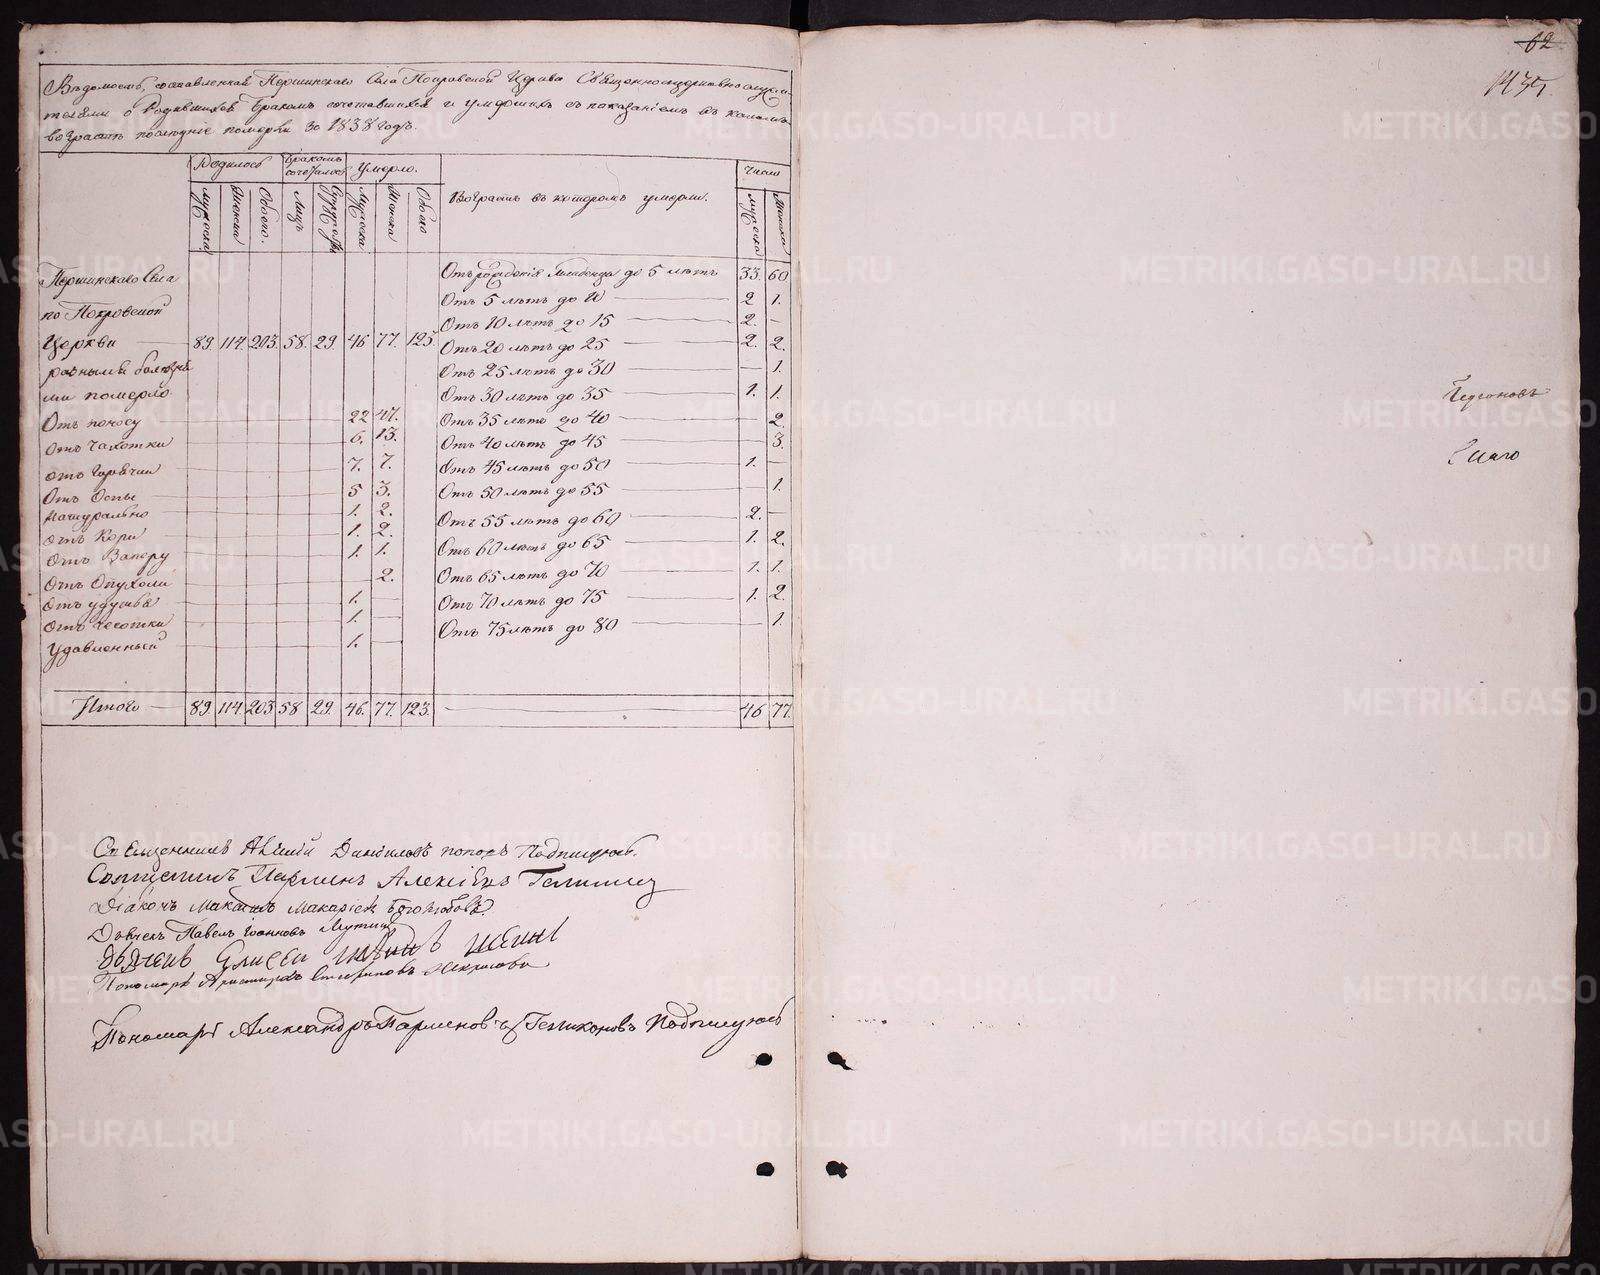 Ведомость, составленная Першинскаго Села Покровской Церкви Священноцерковнослужи-
телями о Родившихся Бракомъ сочетавшихся и умершихъ съ показаніемъ въ какомъ
возрасте последніе померли за 1838 годъ.
Родилось Бракомъ сочеталось Умерло. Число
Мужеска Женска Обоего. Лицъ Супружествъ Мужеска Женска Обоего Возрастъ въ которомъ умерли. Мужеска Женска
Першинскаго Села Отъ рожденія младенца до 5 летъ 33. 60
по Покровской Отъ 5 летъ до 10 2 1.
Отъ 10 летъ до 15 2. —
Церкви 89. 114. 203. 58. 29. 46 77. 123. Отъ 20 летъ до 25 2. 2.
разными болезня Отъ 25 летъ до 30 — 1.
ми померло Отъ 30 летъ до 35 1. 1.
Отъ поносу 22 47. Отъ 35 летъ до 40 — 2.
Отъ чахотки 6. 13. Отъ 40 летъ до 45 — 3.
отъ Горячки 7. 7. Отъ 45 летъ до 50 1. —
Отъ Оспы 5 3. Отъ 50 летъ до 55 — 1.
Натурально 1. 2. Отъ 55 летъ до 60 2. —
отъ Кори 1. 2. Отъ 60 летъ до 65 1. 2.
Отъ Запору 1. 1. Отъ 65 летъ до 70 1. 1.
Отъ Опухоли — 2. Отъ 70 летъ до 75 1. 2
Отъ удушья 1. — Отъ 75 летъ до 80 — 1.
Отъ чесотки 1. —
Удавленный 1. —
Итого 89. 114 203 58 29. 46. 77. 123. 46 77.
Священникъ Данииловъ Подписуюсь.
Парменъ Алексіевъ
Діаконъ Макарьевъ Боголюбовъ.
Павелъ Іоанновъ
Елисей
Пономарь Некрасовъ
Пономарь Александръ Парменовъ Подписуюсь
62
1435
METRIKI.GASO-URAL.RU